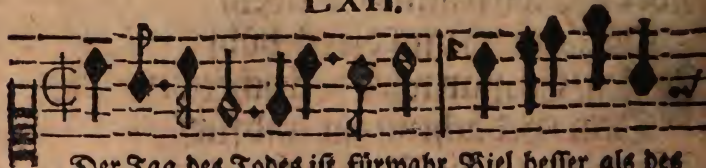 LXII.
Der Tag des Todes iſt fürwahr Viel beſſer als des